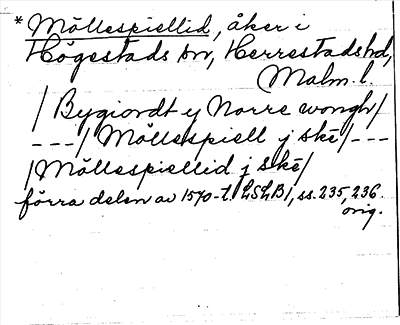 * Möllespiellid, åker i
Högestads sn, Herrestads hd,
Malm. l.
/ Bygiordt y Norre wongh/
---/ Möllespiell j skē/---
/Möllespiellid j skē/
förra delen av 1570-t. LSLB1, ss. 235, 236.
orig.